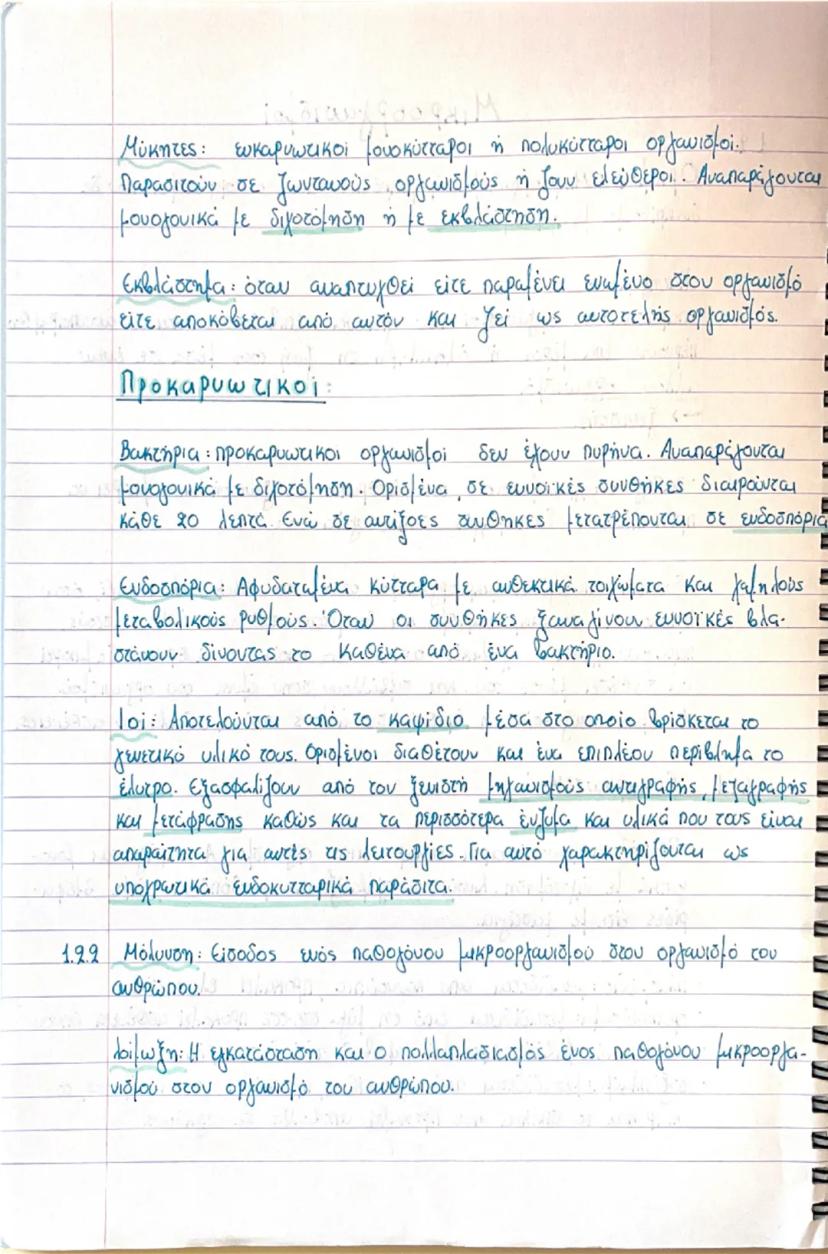 Μύκητες: ευκαρυωτικοί μονοκύτταροι ή πολυκύτταροι οργανισμοί.
Παρασιτούν σε ζωντανούς οργανισμούς ή ζουν ελεύθεροι. Αναπαράγονται
μονογονικά με διχοτόμηση ή με εκβλάστηση.
Εκβλάστημα: όταν αναπτυχθεί είτε παραμένει ενωμένο στον οργανισμό
είτε αποκόβεται από αυτόν και ζεί ως αυτοτελής οργανισμός.
Προκαρυωτικοί:
Βακτήρια: προκαρυωτικοι οργανισμοί δεν έχουν πυρήνα. Αναπαράγονται
μονογονικά με διχοτόμηση. Ορισμένα, σε ευνοϊκές συνθήκες διαιρούνται
κάθε 20 λεπτά. Ενώ σε αντίξοες συνθηκες μετατρέπονται σε ενδοσπόρια
Ενδοσπόρια: Αφυδατωμένα κύτταρα με ανθεκτικά τοιχώματα και χαμηλούς
μεταβολικούς ρυθμούς. Όταν οι συνθήκες ξαναγίνουν ευνοϊκές βλα-
στάνουν δίνοντας το καθένα από ένα βακτήριο.
Ιοί: Αποτελούνται από το καψίδιο μέσα στο οποίο βρίσκεται το
γενετικό υλικό τους. Ορισμένοι διαθέτουν και ένα επιπλέον περίβλημα το
έλυτρο. Εξασφαλίζουν από τον ξενιστή μηχανισμούς αντιγραφής, μεταγραφής
και μετάφρασης καθώς και τα περισσότερα ένζυμα και υλικά που τους είναι
απαραίτητα για αυτές τις λειτουργίες. Για αυτό χαρακτηρίζονται ως
υποχρωτικά ενδοκυτταρικά παράσιτα.
1.2.2 Μόλυνση: Είσοδος ενός παθογόνου μικροοργανισμού στον οργανισμό του
ανθρώπου.
Λοίμωξη: Η εγκατάσταση και ο πολλαπλασιασμός ένος παθογόνου μικροοργα-
νισμού στον οργανισμό του ανθρώπου.